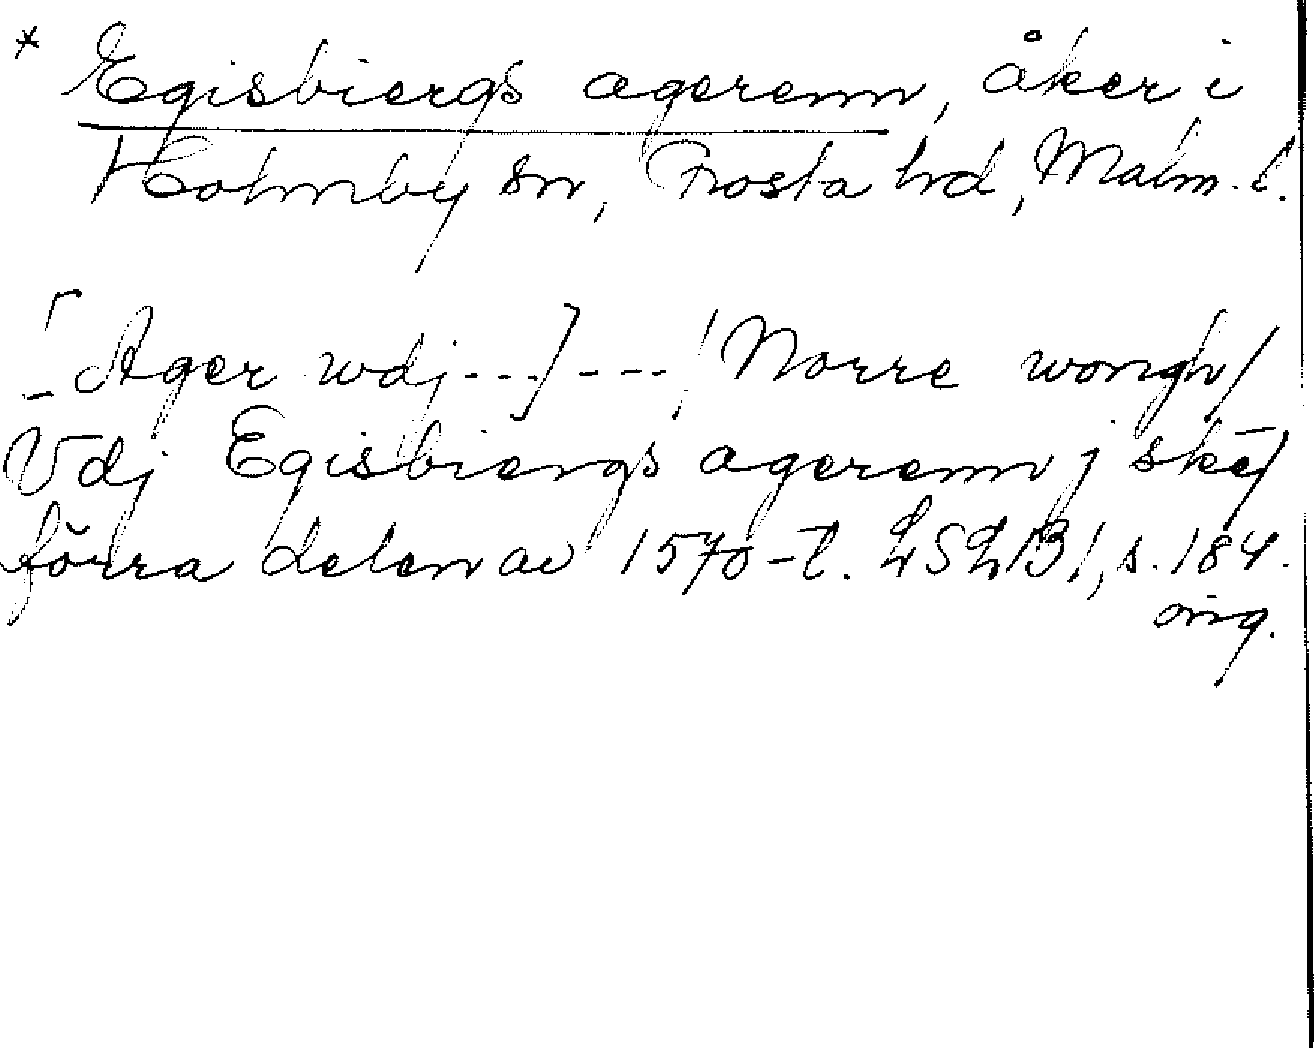 * Egisbiergs agerenn, åker i
Holmby sn, Frosta hd, Malm. l.
[Ager wdj---]---/Norre wongh/
Vdj Egisbiergs agerenn j skē/
förra delen av 1570-t. LSLB1, s. 184.
orig.